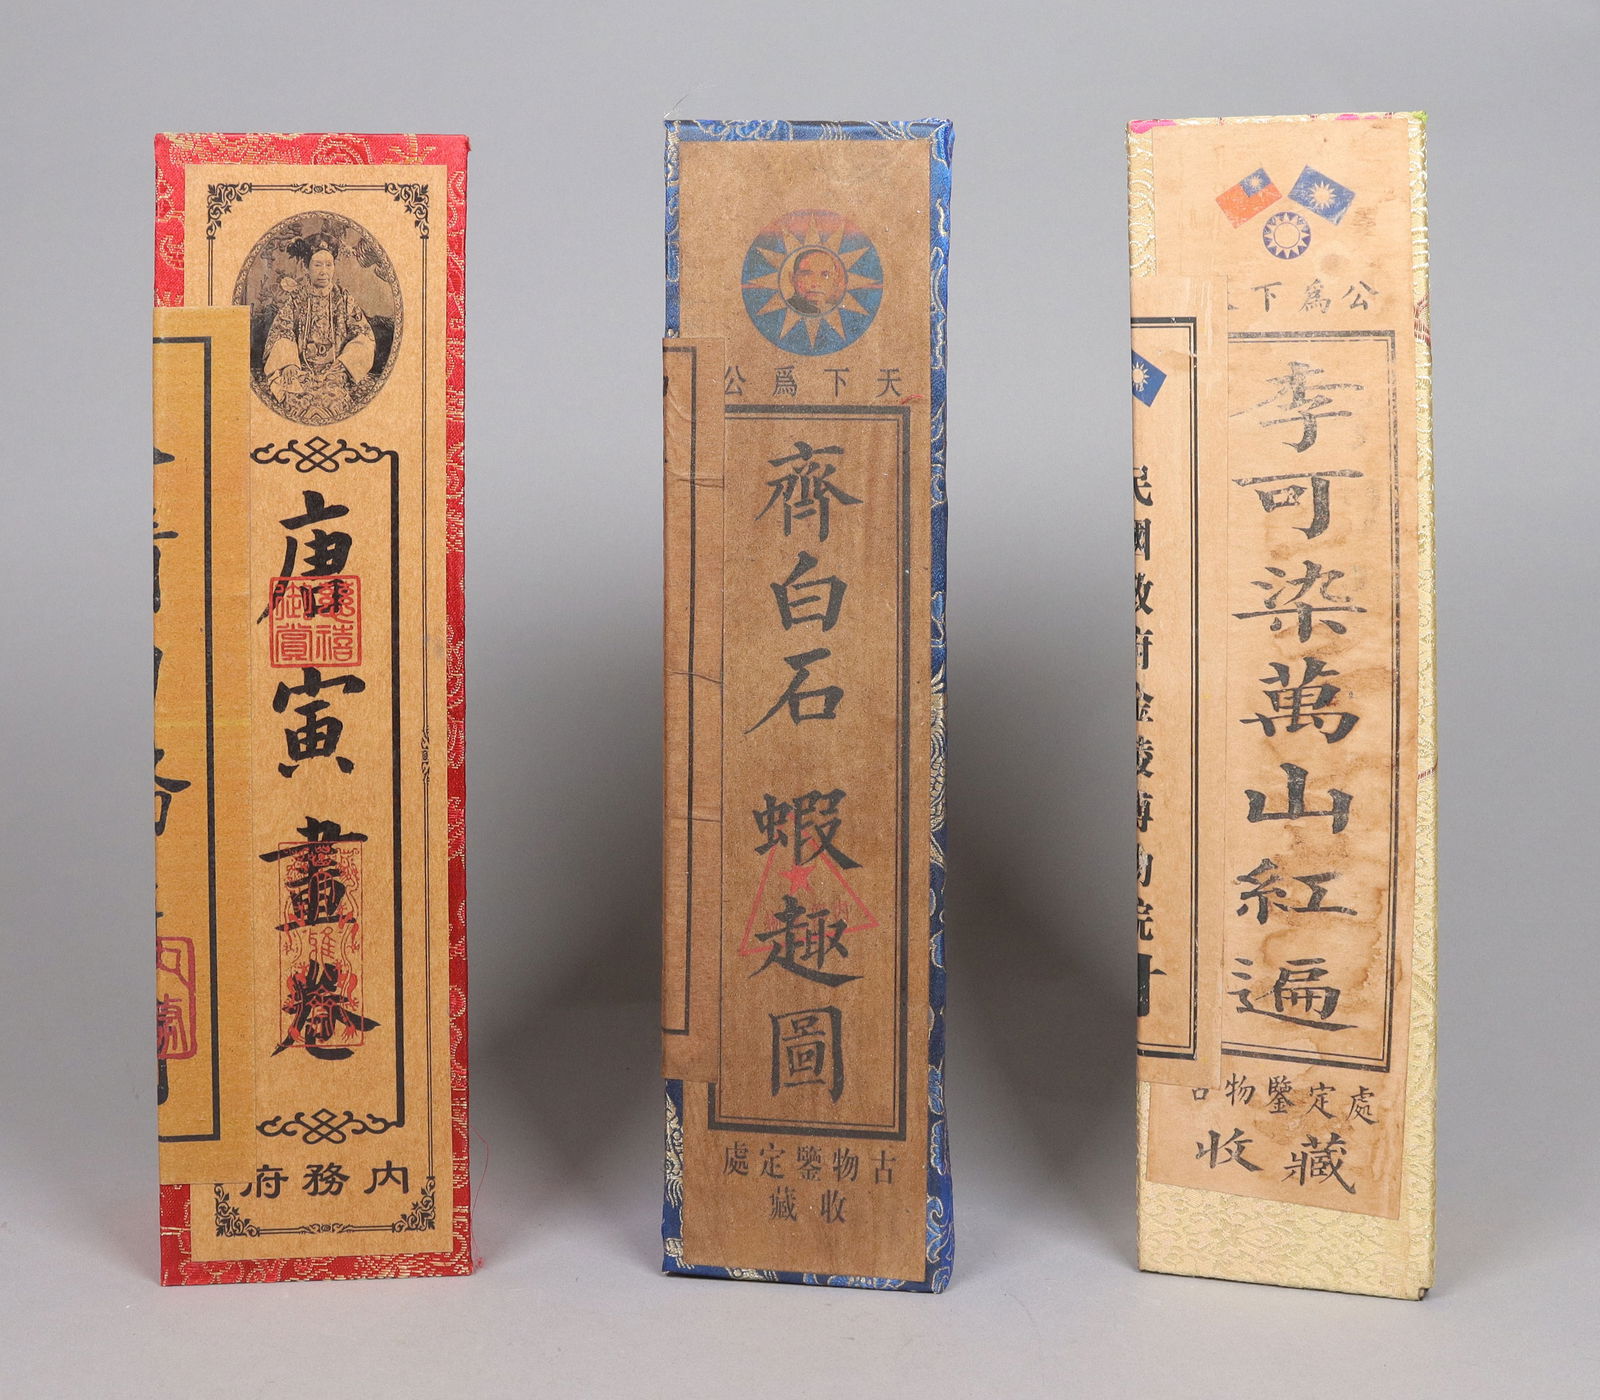 唐寅 畫卷
慈禧
御賞
内務府
天下爲公
齊白石 蝦趣圖
古物鑒定處
收藏
下為公
李可染萬山紅遍
物鑒定處
收藏
民國政府金陵博物院